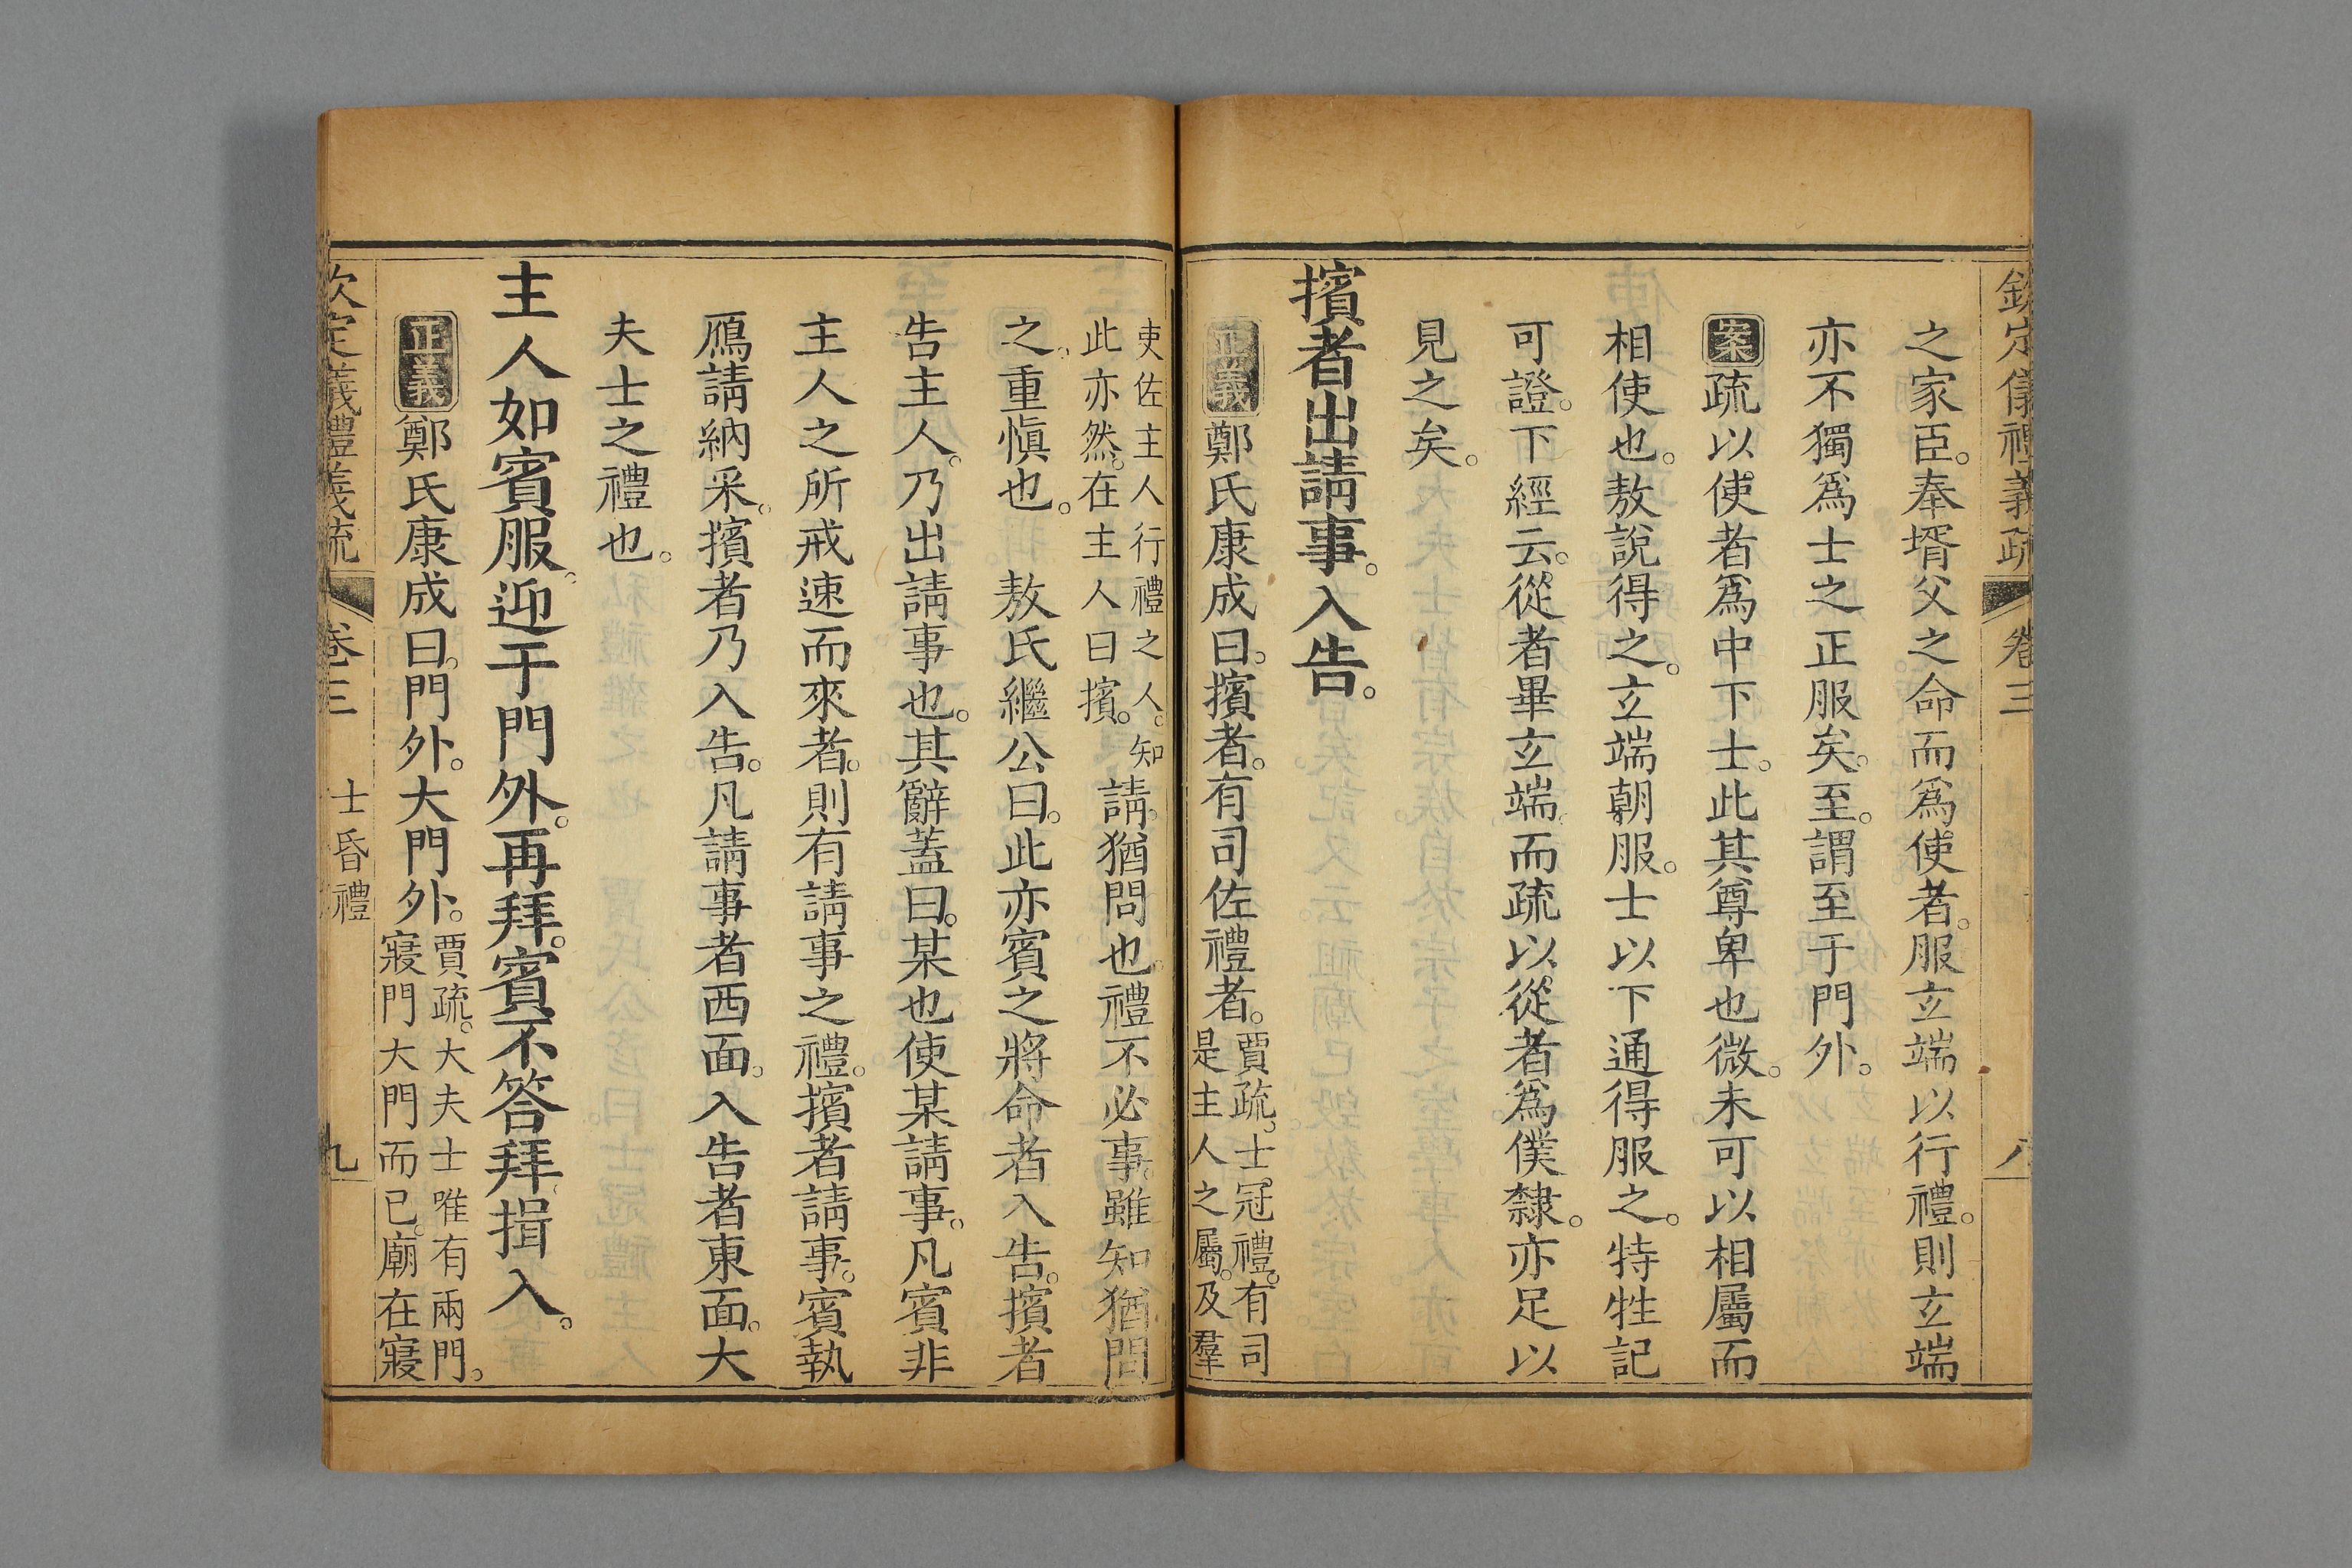 欽定儀禮義疏 卷三 八
之家臣。奉壻父之命而爲使者。服玄端以行禮。則玄端
亦不獨爲士之正服矣。至。謂至于門外。
案疏以使者爲中下士。此其尊卑也微。未可以相屬而
相使也。敖說得之。玄端朝服。士以下通得服之。特牲記
可證。下經云。從者畢玄端。而疏以從者爲僕隸。亦足以
見之矣。
擯者出請事。入告。
正義鄭氏康成曰。擯者。有司佐禮者。賈疏。士冠禮。有司
是主人之屬。及羣
吏佐主人行禮之人。知
此亦然。在主人曰擯。請。猶問也。禮不必事。雖知猶問
之。重愼也。 敖氏繼公曰。此亦賓之將命者入告。擯者
告主人。乃出請事也。其辭蓋曰。某也使某請事。凡賓非
主人之所戒速而來者。則有請事之禮。擯者請事。賓執
鴈請納采。擯者乃入告。凡請事者西面。入告者東面。大
夫士之禮也。
主人如賓服。迎于門外。再拜。賓不答拜。揖入。
正義鄭氏康成曰。門外。大門外。賈疏。大夫士唯有兩門。
寢門大門而已。廟在寢
欽定義禮義疏 卷三 士昏禮 九